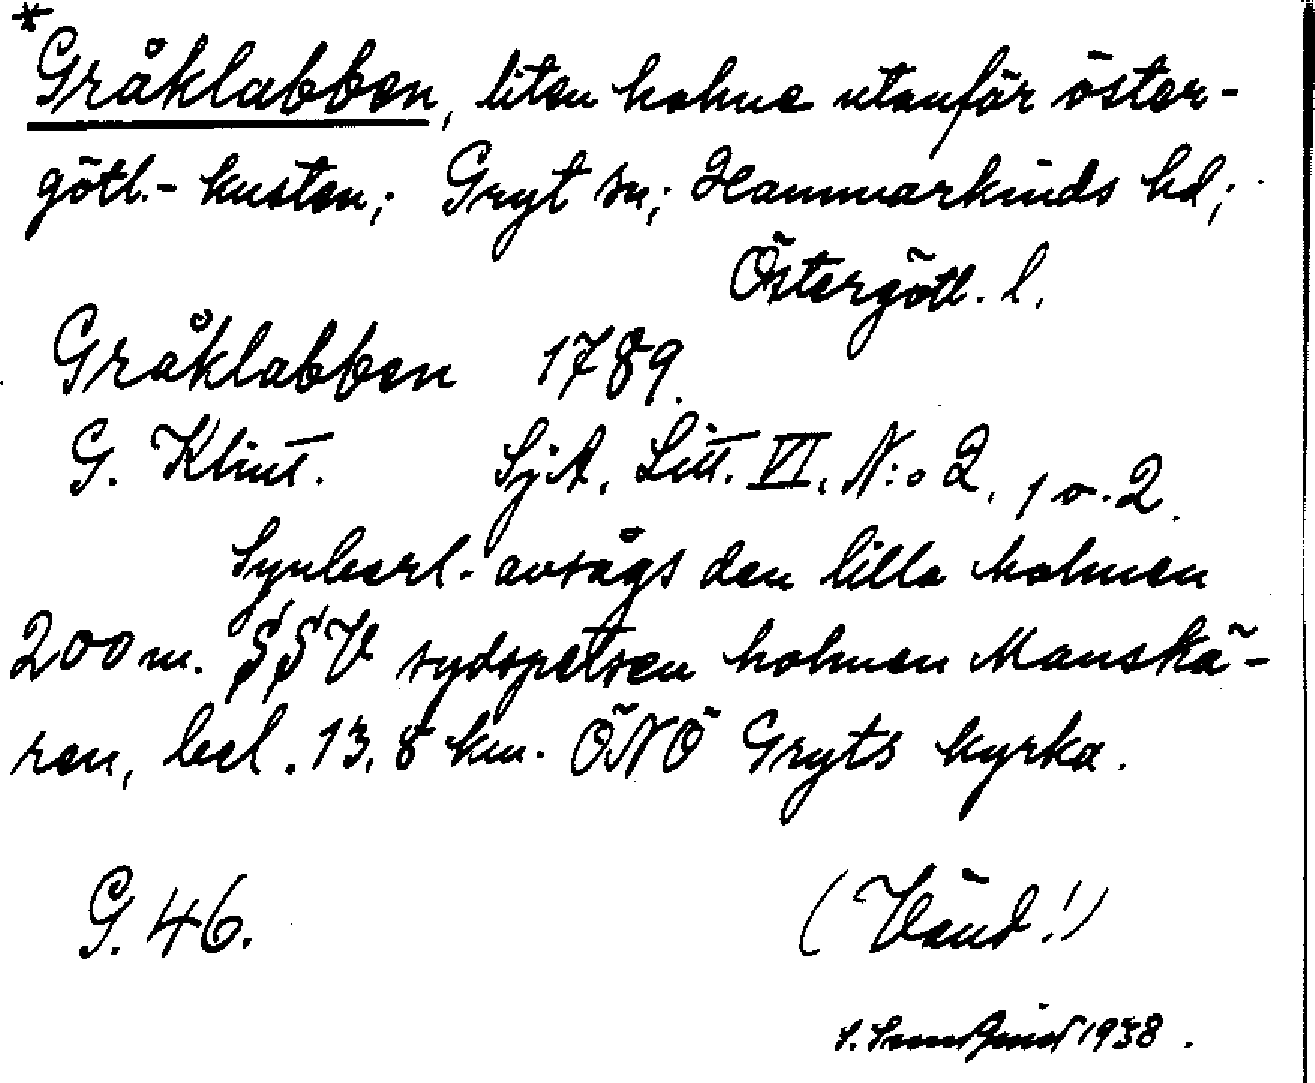 *Gråklabben, liten holme utanför öster-
götl.- kusten; Gryt sn; Hammarkinds hd;
Östergötl. l.
Gråklabben 1789.
G. Klint. SjA, Litt. VI, N:o 2, 1 o. 2.
Synberl. avsågs den lilla holmen
200 m. SSV sydspetsen holmen Manskä-
ren, bel. 13,8 km. ÖNÖ Gryts kyrka.
G. 46.
(Vänd!)
1938.